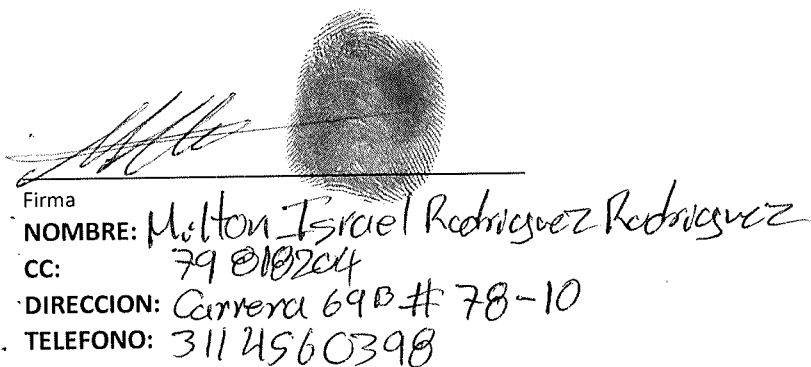 Firma
NOMBRE: Milton Israel Rodriguez Rodriguez
CC: 79818204
DIRECCION: Carrera 69B # 78-10
TELEFONO: 3114560398